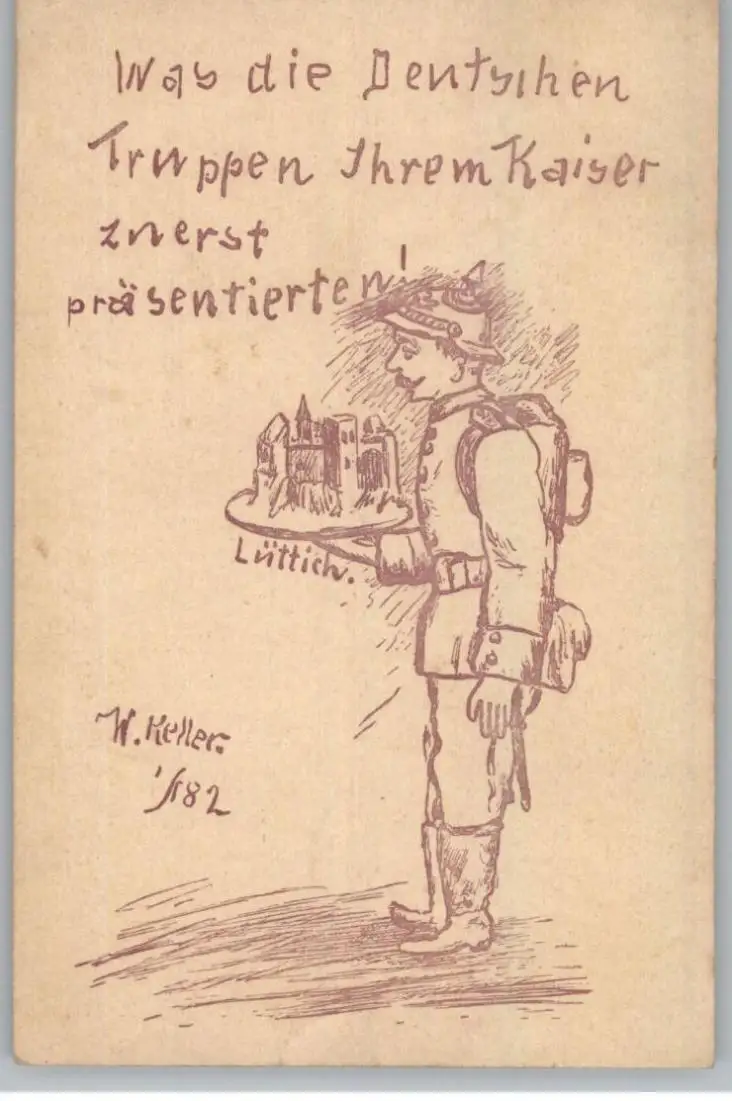 Was die Deutschen
Truppen Ihrem Kaiser
zuerst
präsentierten!
Lüttich.
W. Keller.